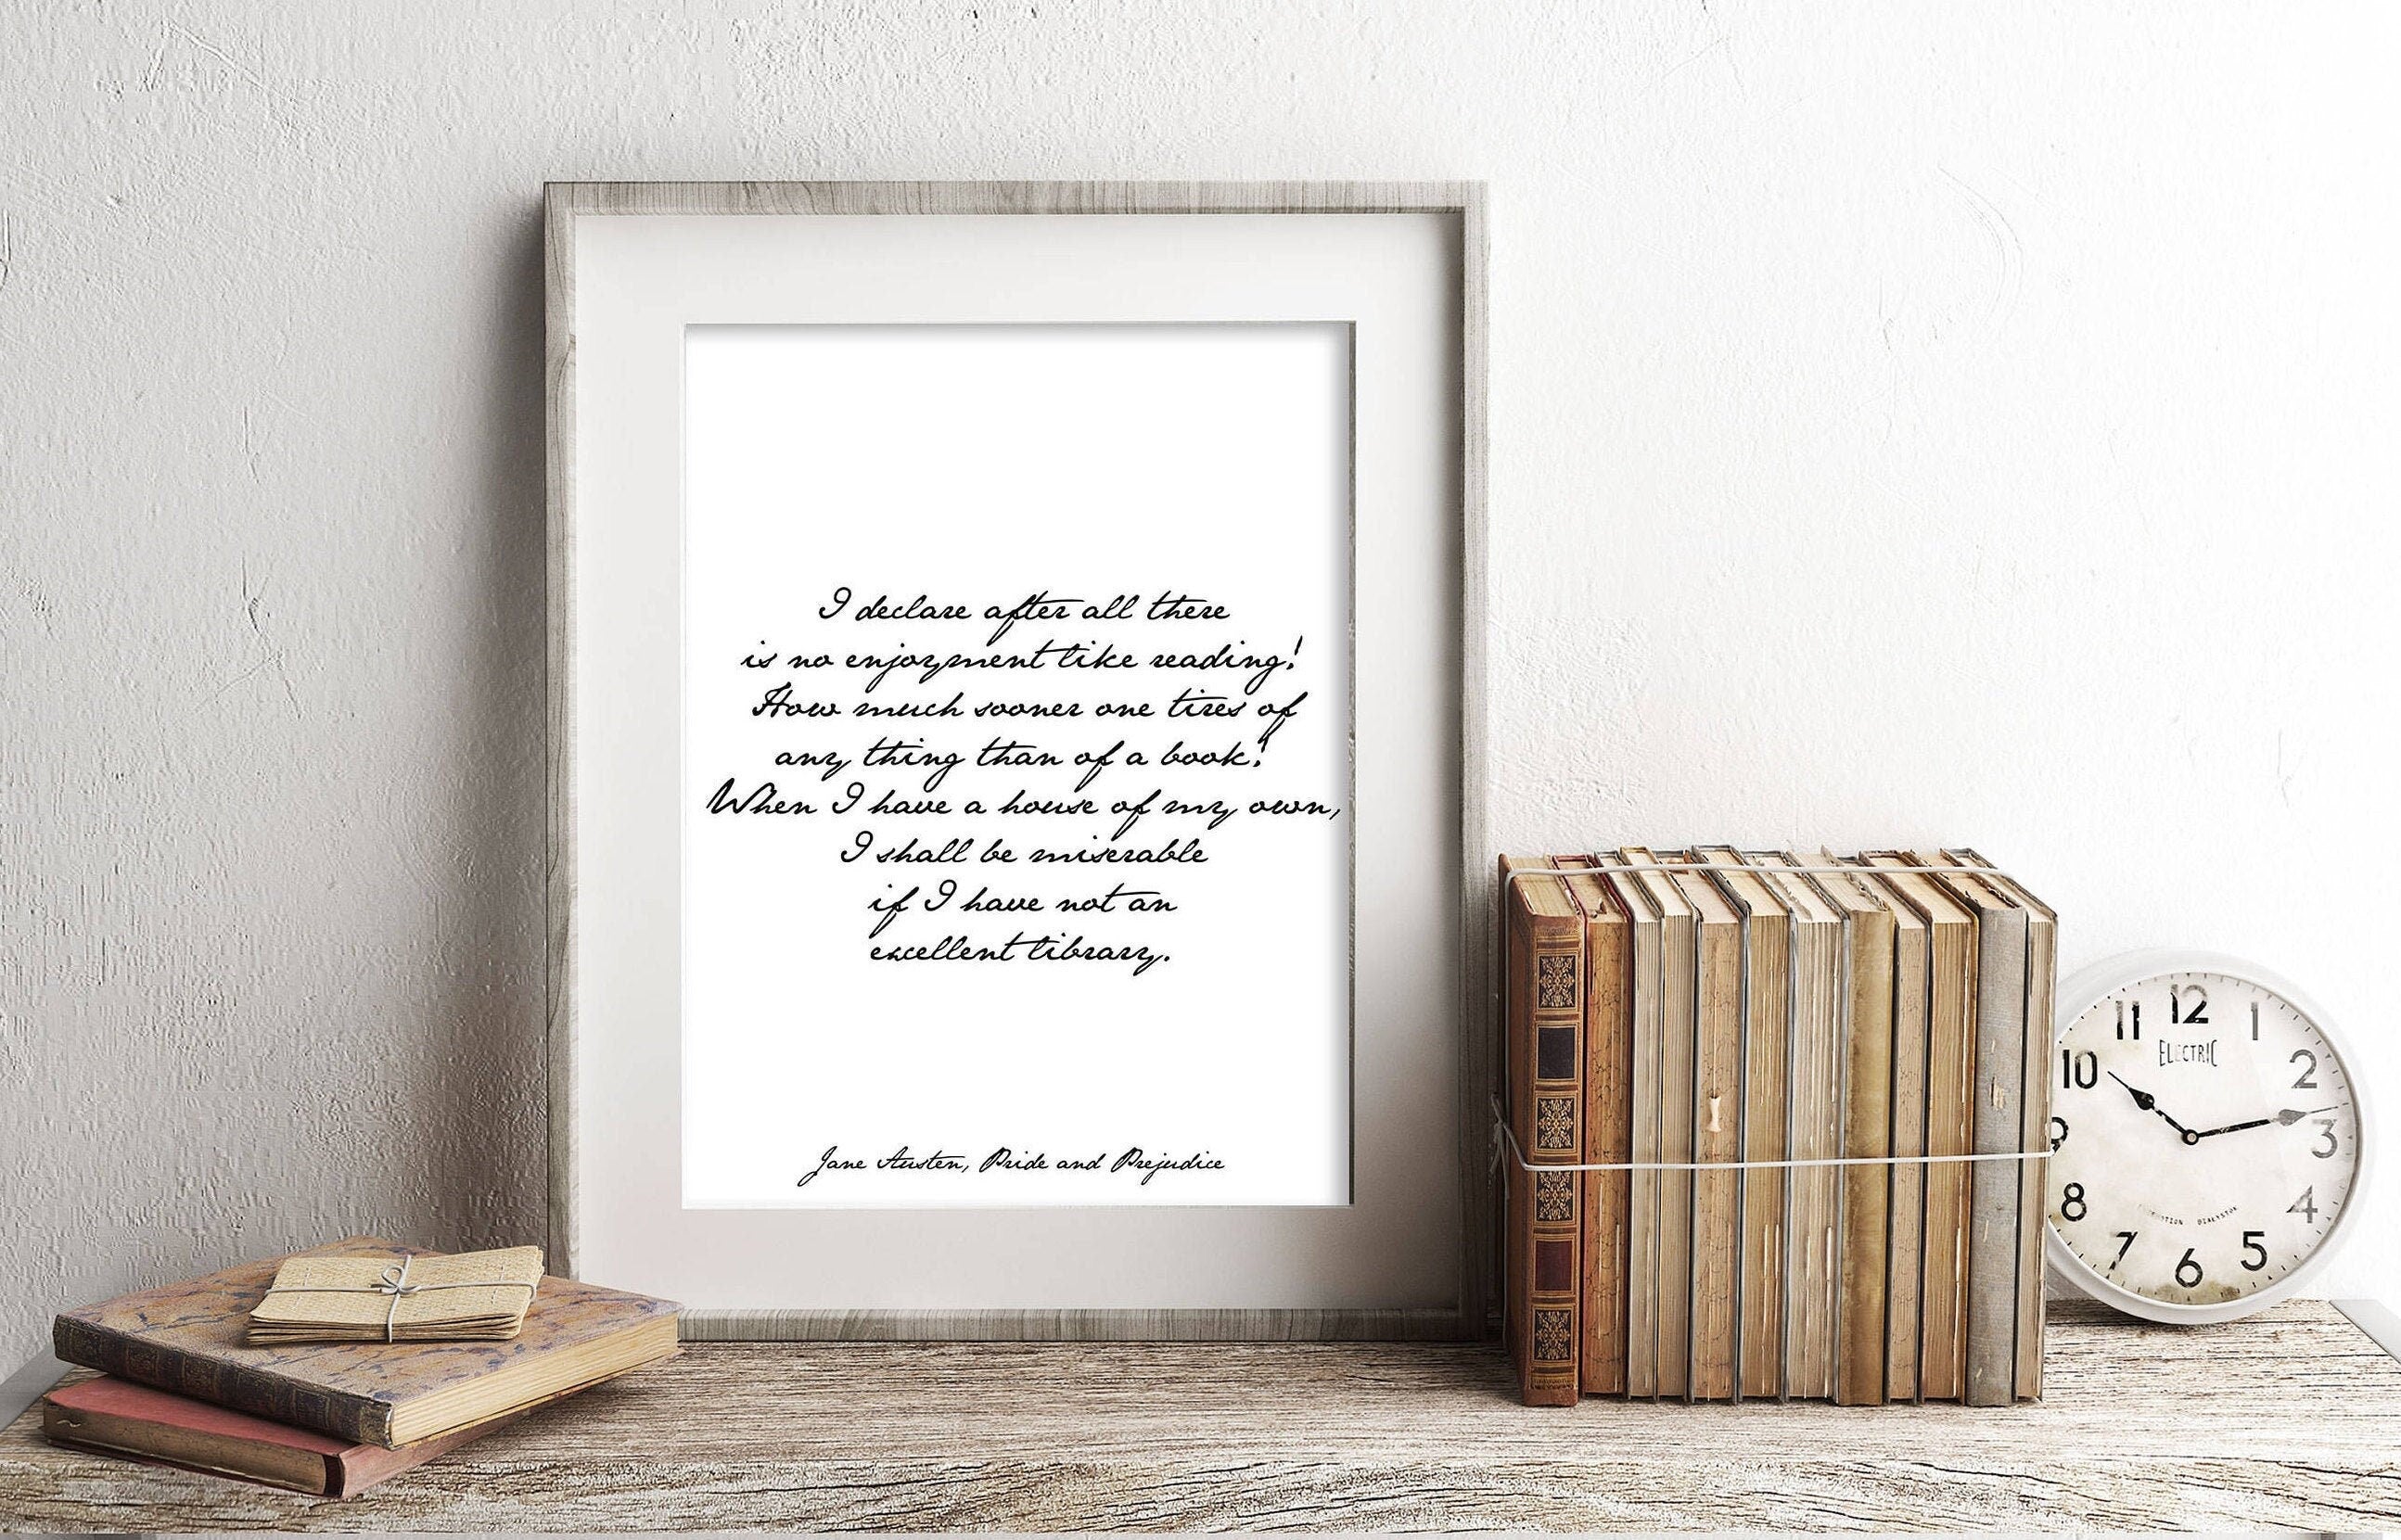 I declare after all there
is no enjoyment like reading!
How much sooner one tires of
any thing than of a book!
When I have a house of my own,
I shall be miserable
if I have not an
excellent library.
Jane Austen, Pride and Prejudice
11 12 1
ELECTRIC
10 2
9 3
8 4
7 6 5